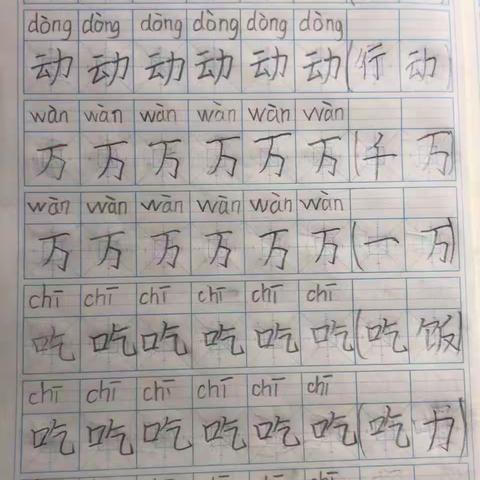 dòng dòng dòng dòng dòng dòng
动 动 动 动 动 动 (行 动)
wàn wàn wàn wàn wàn wàn
万 万 万 万 万 万 (千 万)
wàn wàn wàn wàn wàn wàn
万 万 万 万 万 万 (一 万)
chī chī chī chī chī chī
吃 吃 吃 吃 吃 吃 (吃 饭)
chī chī chī chī chī chī
吃 吃 吃 吃 吃 吃 (吃 力)